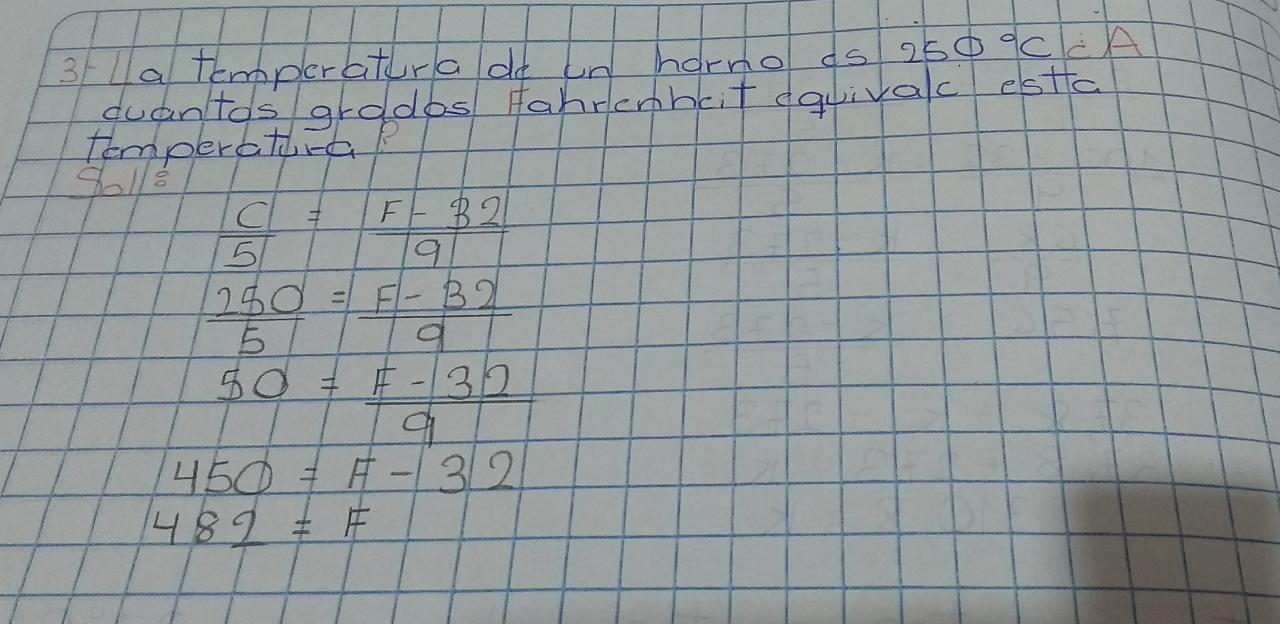 3-La temperatura de un horno es 250 °C ¿A
cuantos grados Fahrenheit equivale esta
temperatura?
Sol:
C/5 = F-32/9
250/5 = F-32/9
50 = F-32/9
450 = F-32
482 = F